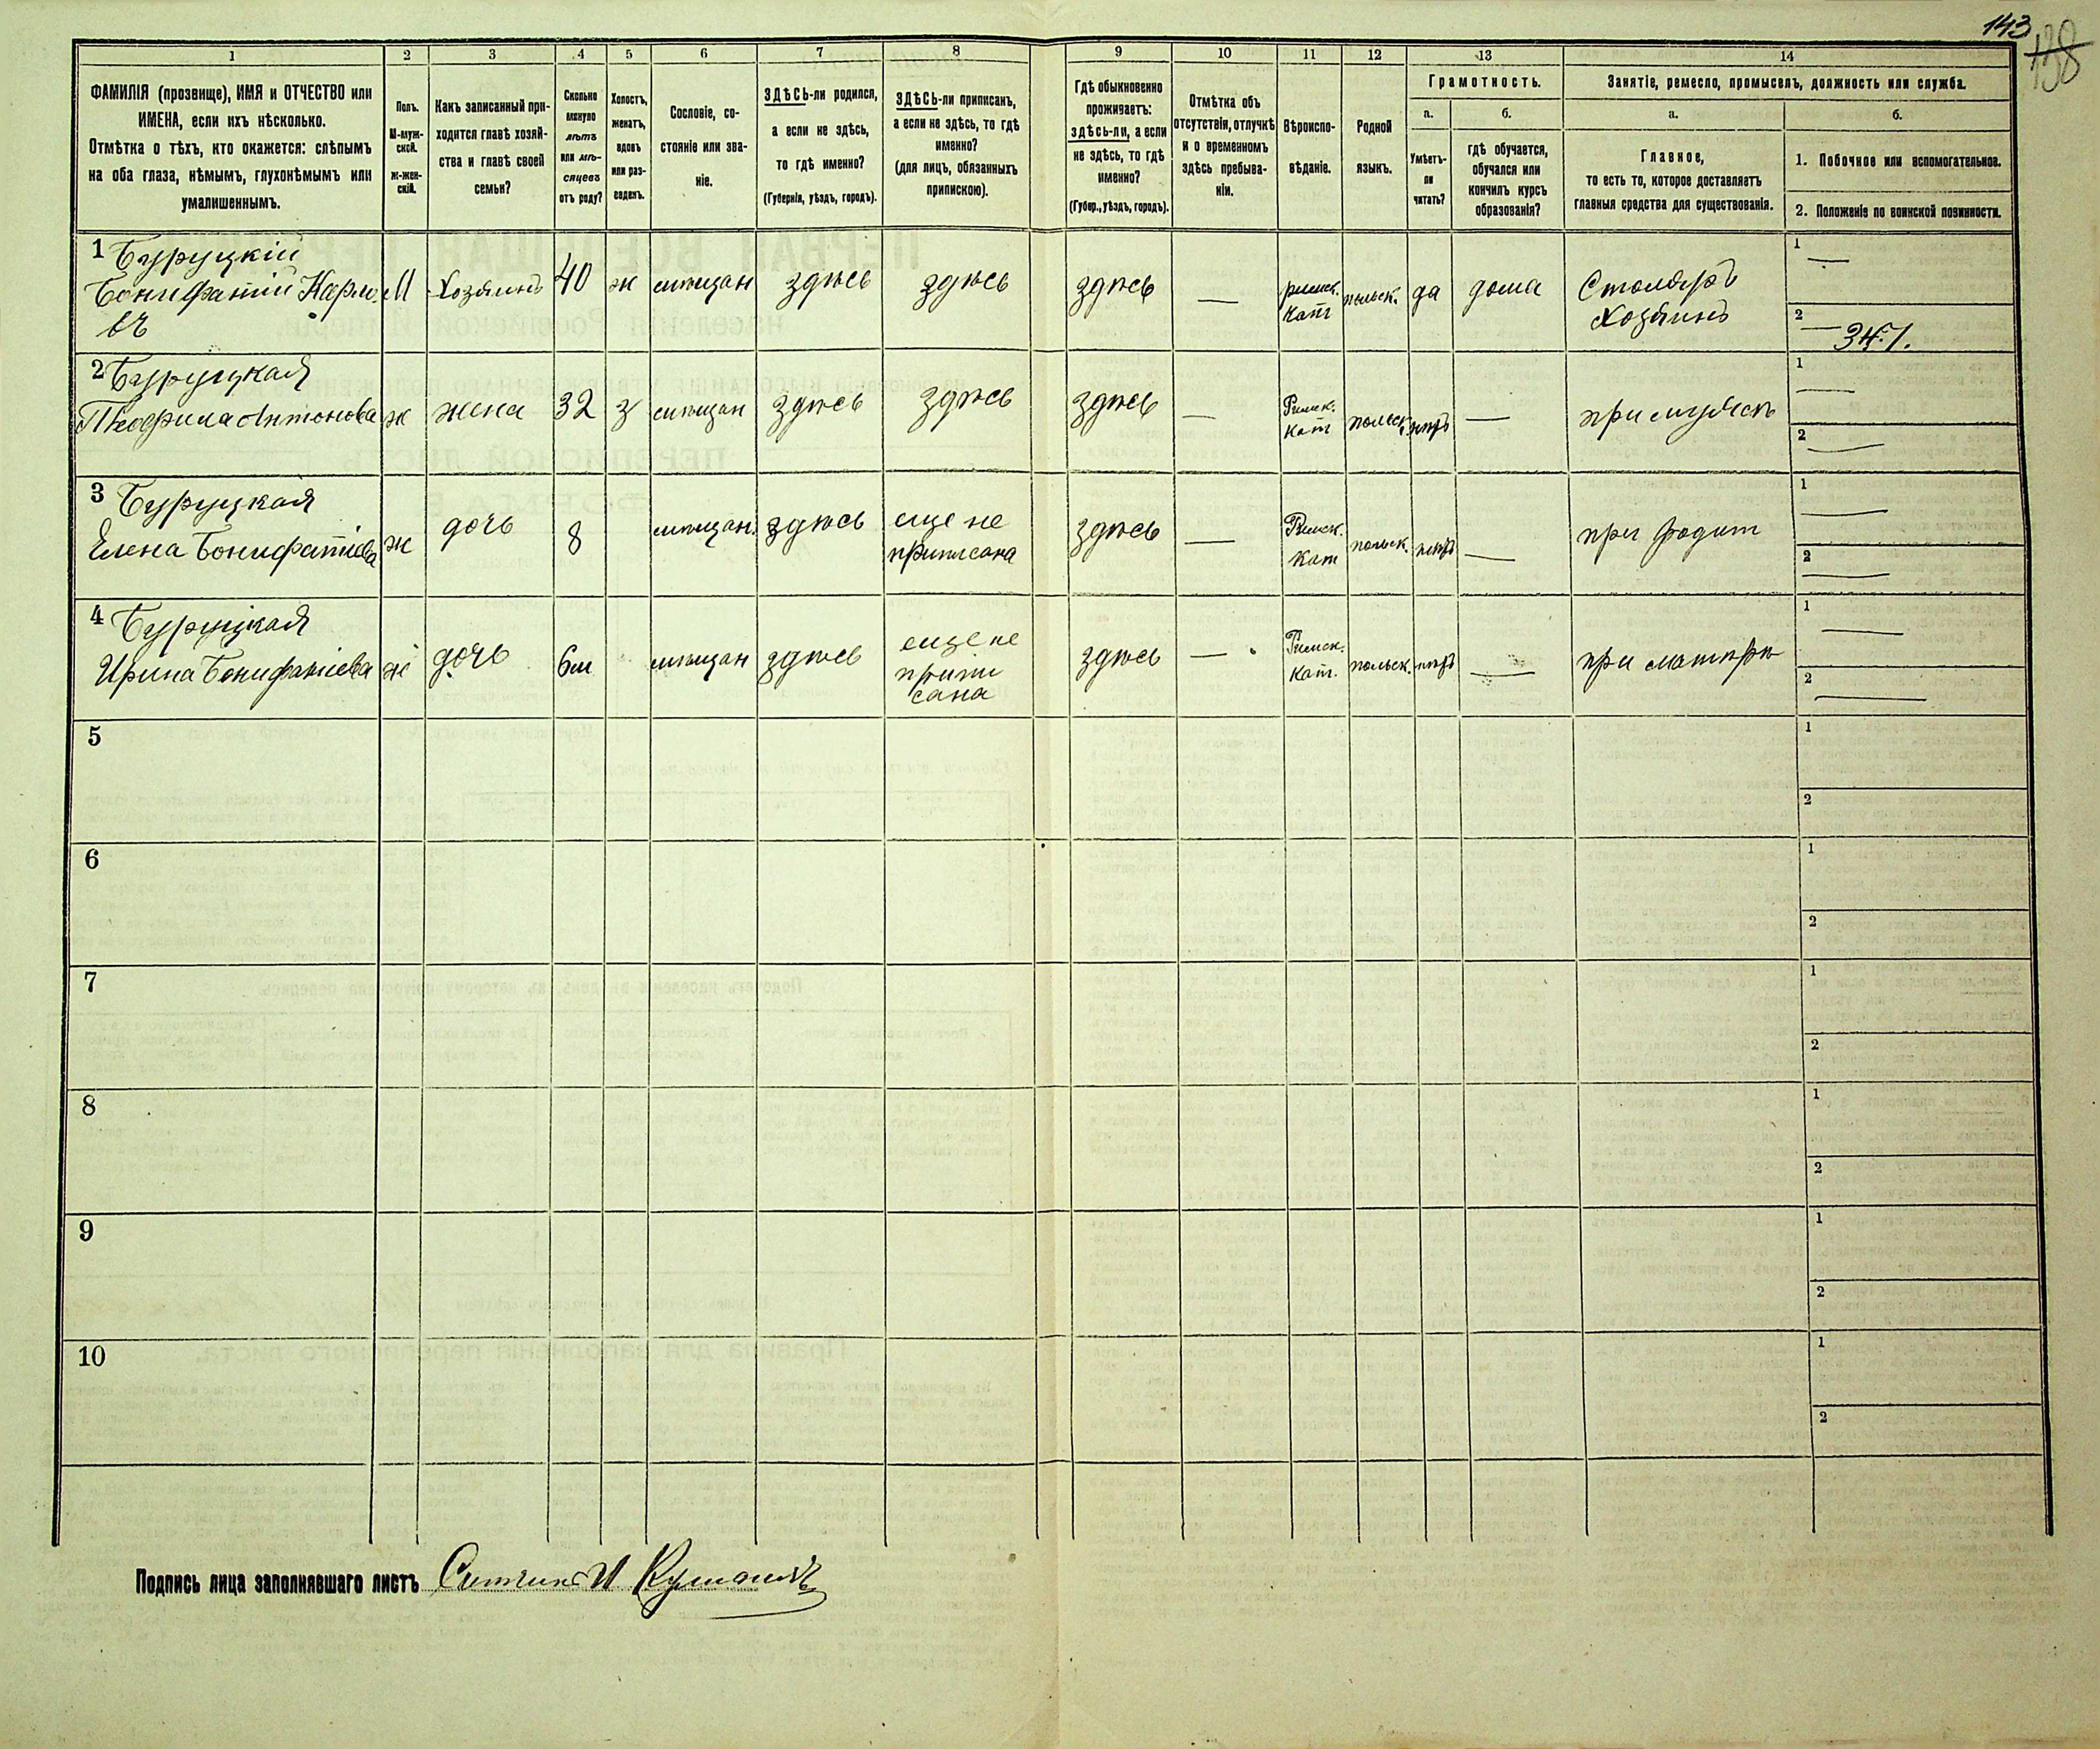 143
138
1
2
3
4
5
6
7
8
9
10
11
12
13
14
ФАМИЛІЯ (прозвище), ИМЯ и ОТЧЕСТВО или
ИМЕНА, если ихъ нѣсколько.
Отмѣтка о тѣхъ, кто окажется: слѣпымъ
на оба глаза, нѣмымъ, глухонѣмымъ или
умалишеннымъ.
Полъ.
М-муж-
ской.
ж-жен-
скій.
Какъ записанный при-
ходится главѣ хозяй-
ства и главѣ своей
семьи?
Сколько
минуло
лѣтъ
или мѣ-
сяцевъ
отъ роду?
Холостъ,
женатъ,
вдовъ
или раз-
веденъ.
Сословіе, со-
стояніе или зва-
ніе.
ЗДѢСЬ-ли родился,
а если не здѣсь,
то гдѣ именно?
(Губернія, уѣздъ, городъ).
ЗДѢСЬ-ли приписанъ,
а если не здѣсь, то гдѣ
именно?
(для лицъ, обязанныхъ
припискою).
Гдѣ обыкновенно
проживаетъ:
здѣсь-ли, а если
не здѣсь, то гдѣ
именно?
(Губер., уѣздъ, городъ).
Отмѣтка объ
отсутствіи, отлучкѣ
и о временномъ
здѣсь пребыва-
ніи.
Вѣроиспо-
вѣданіе.
Родной
языкъ.
Грамотность.
а.
Умѣетъ-
ли
читать?
б.
гдѣ обучается,
обучался или
кончилъ курсъ
образованія?
Занятіе, ремесло, промыселъ, должность или служба.
а.
Главное,
то есть то, которое доставляетъ
главныя средства для существованія.
б.
1. Побочное или вспомогательное.
2. Положеніе по воинской повинности.
1 Буруцкій
Бонифатій Карло
вч
М
Хозяинъ
40
ж
мѣщан
здѣсь
здѣсь
здѣсь
—
римск.
кат
польск.
да
дома
Столяръ
Хозяинъ
1
—
2
—
2 Буруцкая
Теофила Антонова
ж
жена
32
з
мѣщан
здѣсь
здѣсь
здѣсь
—
Римск.
кат
польск.
нѣтъ
—
при мужѣ
1
—
2
—
3 Буруцкая
Елена Бонифатіева
ж
дочь
8
мѣщан.
здѣсь
еще не
приписана
здѣсь
—
Римск.
кат
польск.
нѣтъ
—
при родит
1
—
2
—
4 Буруцкая
Ирина Бонифатіева
ж
дочь
6м
мѣщан
здѣсь
еще не
припи
сана
здѣсь
—
Римск.
кат.
польск.
нѣтъ
—
при матери
1
—
2
—
5
1
2
6
1
2
7
1
2
8
1
2
9
1
2
10
1
2
Подпись лица заполнявшаго листъ